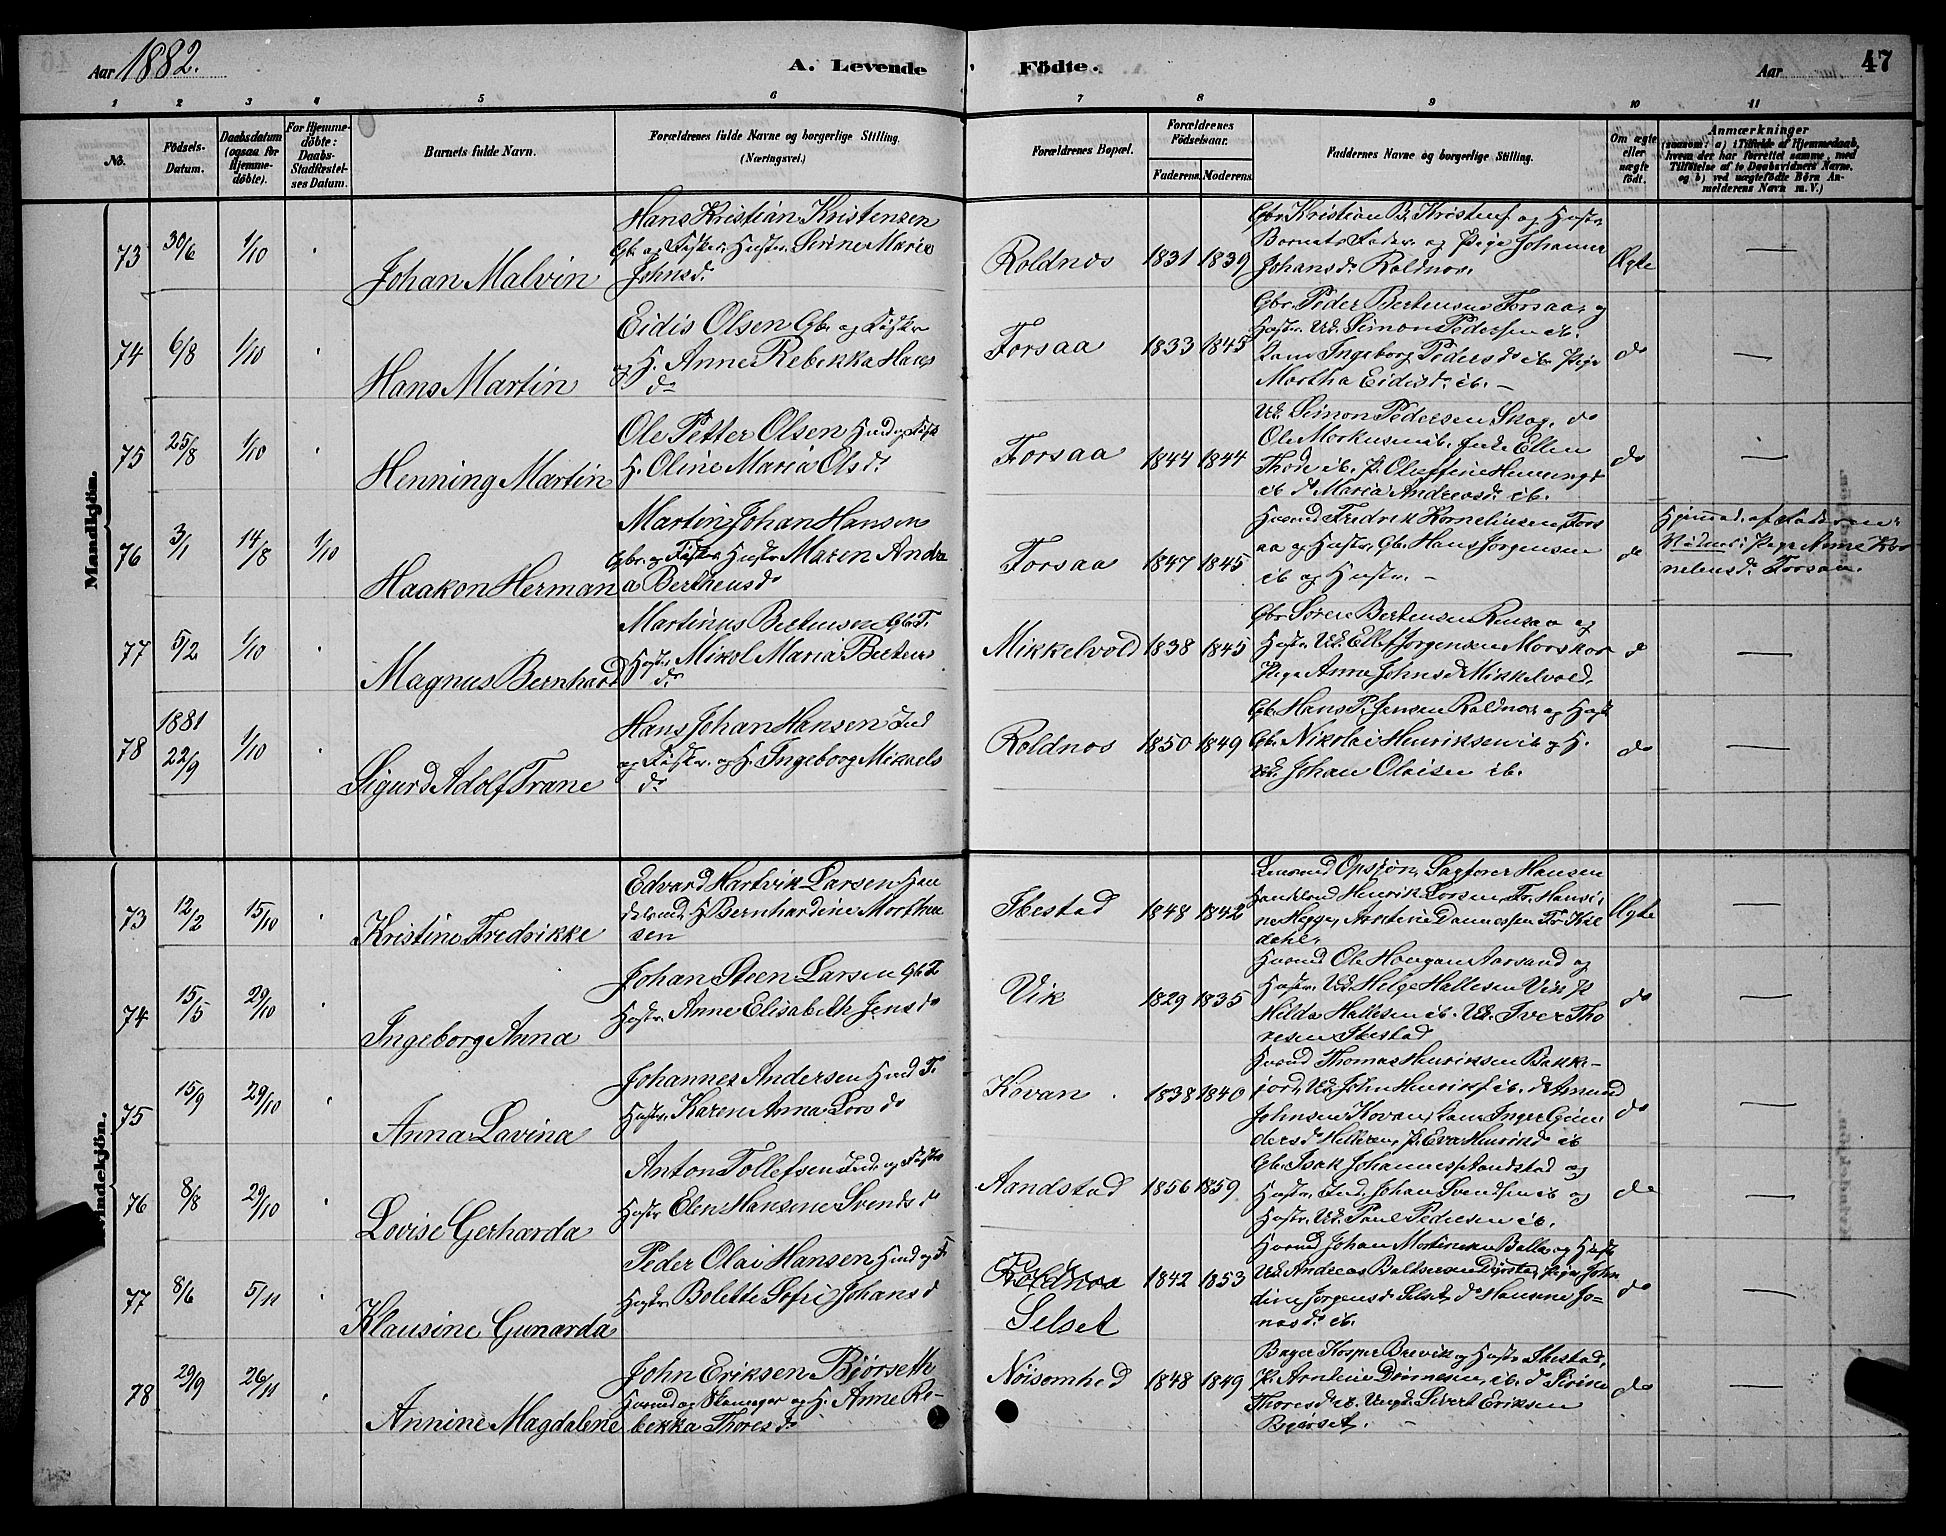 Aar 1882. A. Levende Födte. Aar 47
1 2 3 4 5 6 7 8 9 10 11
No. Födsels-Datum. Daabsdatum (ogsaa for Hjemme-döbte). For Hjemme-döbte: Daabs-Stadfæstel-ses Datum. Barnets fulde Navn. Forældrenes fulde Navne og borgerlige Stilling. (Næringsvei.) Forældrenes Bopæl. Forældrenes Födselsaar. Faderens. Moderens. Faddernes Navne og borgerlige Stilling. Om ægte eller uægte födt. Anmærkninger (saasom: a) i Tilfælde af Hjemmedaab, hvem der har forrettet samme, med Tilföielse af to Daabsvidners Navne, og b) ved uægtefödte Börn An-melderens Navn m. V.)
Mandkjön.
73 30/6 1/10 Johan Malvin
Hans Kristian Kristensen
Gbr og Fisker, Hustr. Sirine Marie
Johnsd.
Roldnos 1831 1839
Gbr Kristian B. Kristens. og Hustr.
Barnets Fader og Pige Johanne
Johansd. Roldnos.
Ægte —
74 6/8 1/10 Hans Martin
Eidis Olsen Gbr og Fisker
og H. Anne Rebekka Hans
dr
Forsaa 1833 1845
Gbr. Peder Bertensen Forsaa og
Hustr. Uk. Simon Pedersen ib.
Ingeborg Pedersd. ib. Pige
Martha Eidisd. ib. —
do —
75 25/8 1/10 Henning Martin
Ole Petter Olsen Husmd og Fisk
H. Oline Maria Olsdr
Forsaa 1844 1844
Uk. Simon Pedersen Skog, do
Ole Markusen ib. Enke Ellen
ib. P. Oleffine Hennings
ib. do Maria Andreasd. ib.
do —
76 3/1 14/8 1/10 Haakon Herman
Martin Johan Hansen
Gbr. og Fisker, Hustr. Maren Andre
a Berthensd
Forsaa 1847 1845
Husmd Fredrik Korneliusen Fors
aa og Hustr. Gbr. Hans Jorgensen
ib og Hustr. —
do
Hjemmed. af Faderen.
Vidne: Pige Anne Kor
neliusd. Forsaa.
77 5/2 1/10 Magnus Bernhard
Martinus Bertensen Gbr F.
Hustr. Mikol Maria Bertens
dr
Mikkelvold 1838 1845
Gbr Sören Bertensen Rensaa og
Hustr. Uk. Ellef Jorgensen
Pige Anne Johnsd Mikkelvold.
d —
78 1881 22/9 1/10 Sigurd Adolf Trane
Hans Johan Hansen Ind
og Fisker. og H. Ingeborg Mikaels
dr
Roldnos 1850 1849
Gbr Hans P. Jensen Roldnos og Hustr
Gbr. Nikolai Henriksen ib og H.
Uk. Johan Olaisen ib.
do —
Kvindekjön.
73 12/2 15/10 Kristine Fredrikke
Edvard Hartvik Larsen Han
delsmd, H Bernhardine Morthen
sen
Ibestad 1848 1842
Lensmd Opsjön, Sagförer Hansen
Handelsmd Henrik Larsen, Fr. Hansi
ne Hegge,
Ægte —
74 15/5 29/10 Ingeborg Anna
Johan Steen Larsen Gbr F
Hustr. Anne Elisabeth Jensdr
Vik 1829 1835
Husmd Ole Haugan Aarsand og
Hustr. Uk. Helge Hallesen Vik P
Hilda Hallesen ib. Uk. Iver Tho
resen Ibestad
do —
75 15/9 29/10 Anna Lavina
Johannes Andersen Husmd F.
Hustr. Karen Anna Larsdr
Kovan 1838 1840
Husmd Thomas Henriksen Bakke-
jord, Uk. John Henriks. ib. do Amund
Johnsen Kovan, Inger
dersd Helleren, P. Eva Henrikd ib
do —
76 8/8 29/10 Lovise Gerharda
Anton Tollefsen Ind. og Fisker
Hustr Elen Hansine Svendsd
Aandstad 1856 1859
Gbr. Isak Johanness. Aandstad og
Hustr. Ind. Johan Svendsen ib og
Hustr. Uk. Paul Pedersen ib.
do —
77 8/6 5/11 Klausine Gunarda
Peder Olai Hansen Husmd og F
Hustr. Bolette Sofie Johansd
Roldnos
Selset 1842 1853
Husmd Johan Martinsen Balla og Hustr
Uk Andreas Baltsersen Pige John
dine Jorgensd. Selset, do Hansine Jo-
nasd. ib.
do —
78 29/9 26/11 Annine Magdalene
John Eriksen Bjørseth
Husmd og Skomager og H. Anne Re-
bekka Thoresdr
Nöisomhed 1848 1849
Bager Kasper Brevik og Hustr Ibestad,
P. Arntine Dønnesen, ib. do Sirine
Thoresd ib. Ungk. Sivert Eriksen
Bjørset. —
do —